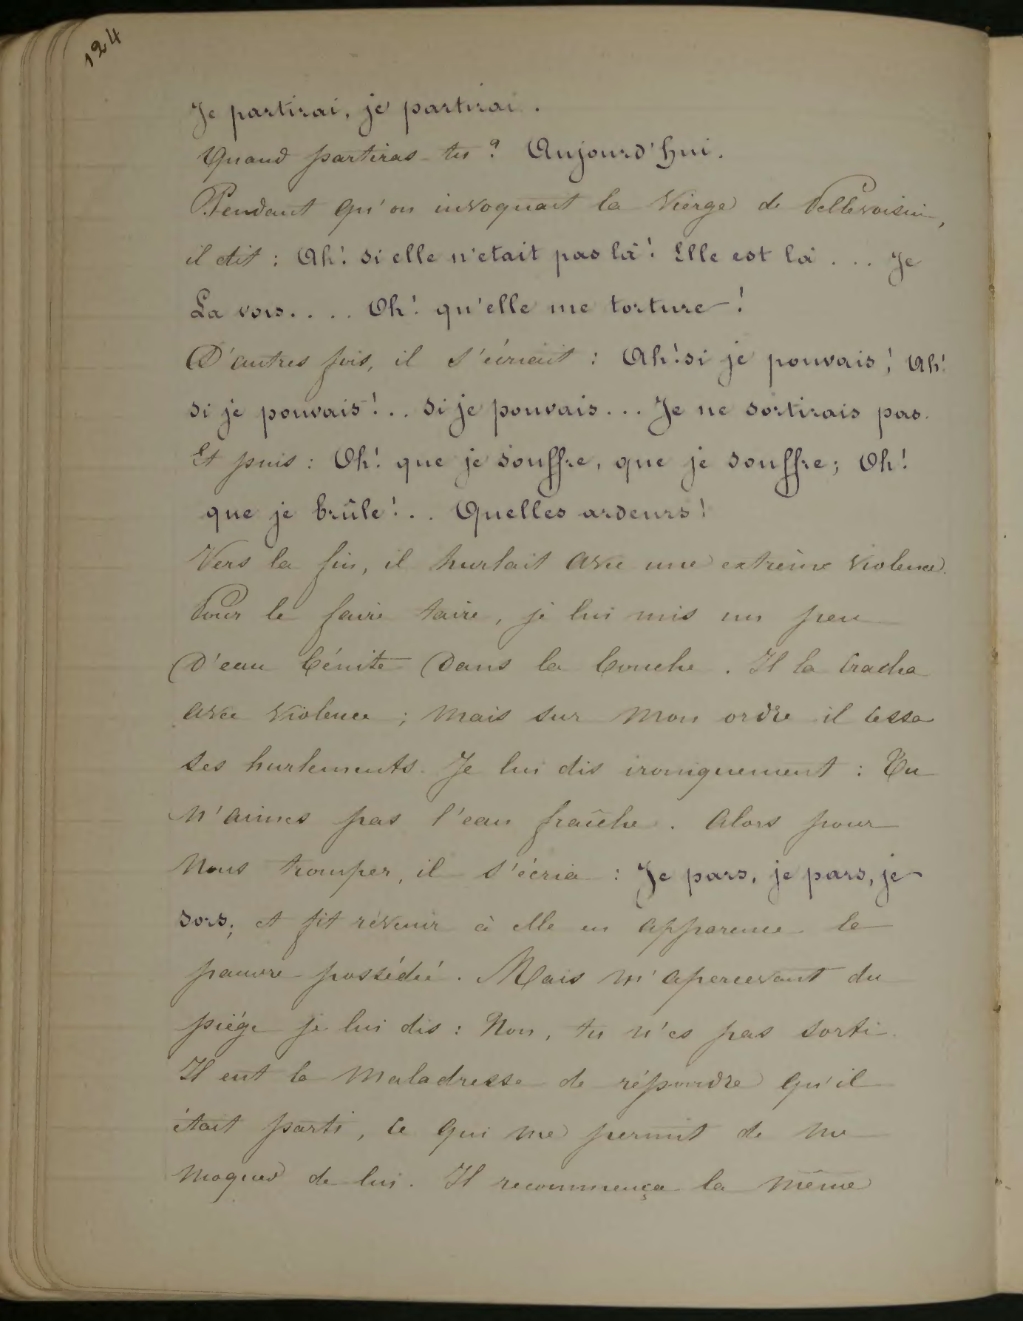 124
Je partirai, je partirai.
Quand partiras-tu? Aujourd'hui.
Pendant qu'on invoquait la Vierge de Pellevoisin,
il dit : Ah! si elle n'etait pas là! Elle est là... Je
La vois.... Oh! qu'elle me torture!
D'autres fois, il s'écriait : Ah! si je pouvais! Ah!
si je pouvais!.. si je pouvais... Je ne sortirais pas.
Et puis : Oh! que je souffre, que je souffre; Oh!
que je brûle!.. Quelles ardeurs!
Vers la fin, il hurlait avec une extrême violence.
Pour le faire taire, je lui mis un peu
D'eau bénite dans la bouche. Il la cracha
avec violence; mais sur mon ordre il cessa
ses hurlements. Je lui dis ironiquement : Tu
n'aimes pas l'eau fraîche. Alors pour
nous tromper, il s'écria : Je pars, je pars, je
sors; et fit revenir à elle en apparence la
pauvre possédée. Mais m'apercevant du
piège je lui dis : Non, tu n'es pas sorti.
Il eut la maladresse de répondre qu'il
était parti, ce qui me permit de me
moquer de lui. Il recommença la même